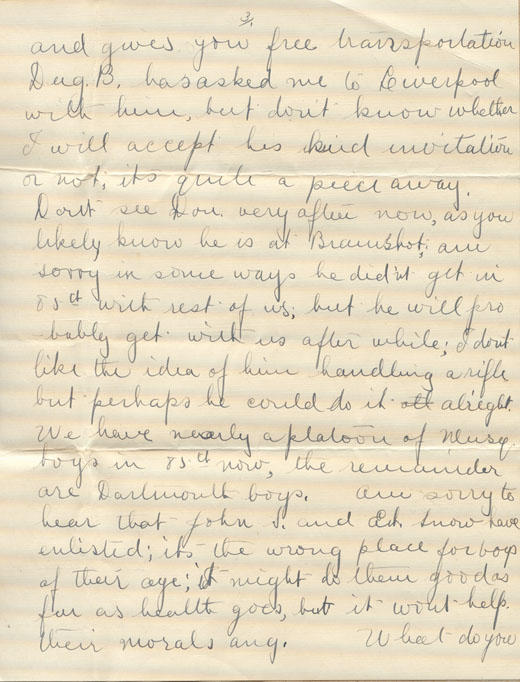 3.
and gives you free transportation
Dug. B. has asked me to Liverpool
with him, but don't know whether
I will accept his kind invitation
or not; its quite a piece away.
Dont see Don. very often now, as you
likely know he is at Bramshot; am
sorry in some ways he did'nt get in
85th with rest of us; but he will pro
bably get with us after while; I dont
like the idea of him handling a rifle
but perhaps he could do it all alright.
We have nearly a platoon of Musq.
boys in 85th now, the remainder
are Dartmouth boys. Am sorry to
hear that John S. and Ed. Snow have
enlisted; its the wrong place for boys
of their age; it might do them good as
far as health goes, but it wont help.
their morals any. What do you